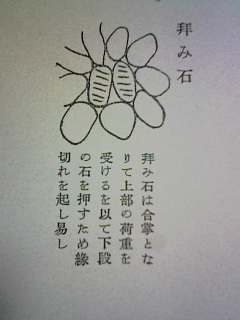 拜み石
拜み石は合掌とな
りて上部の荷重を
受けるを以て下段
の石を押すため緣
切れを起し易し